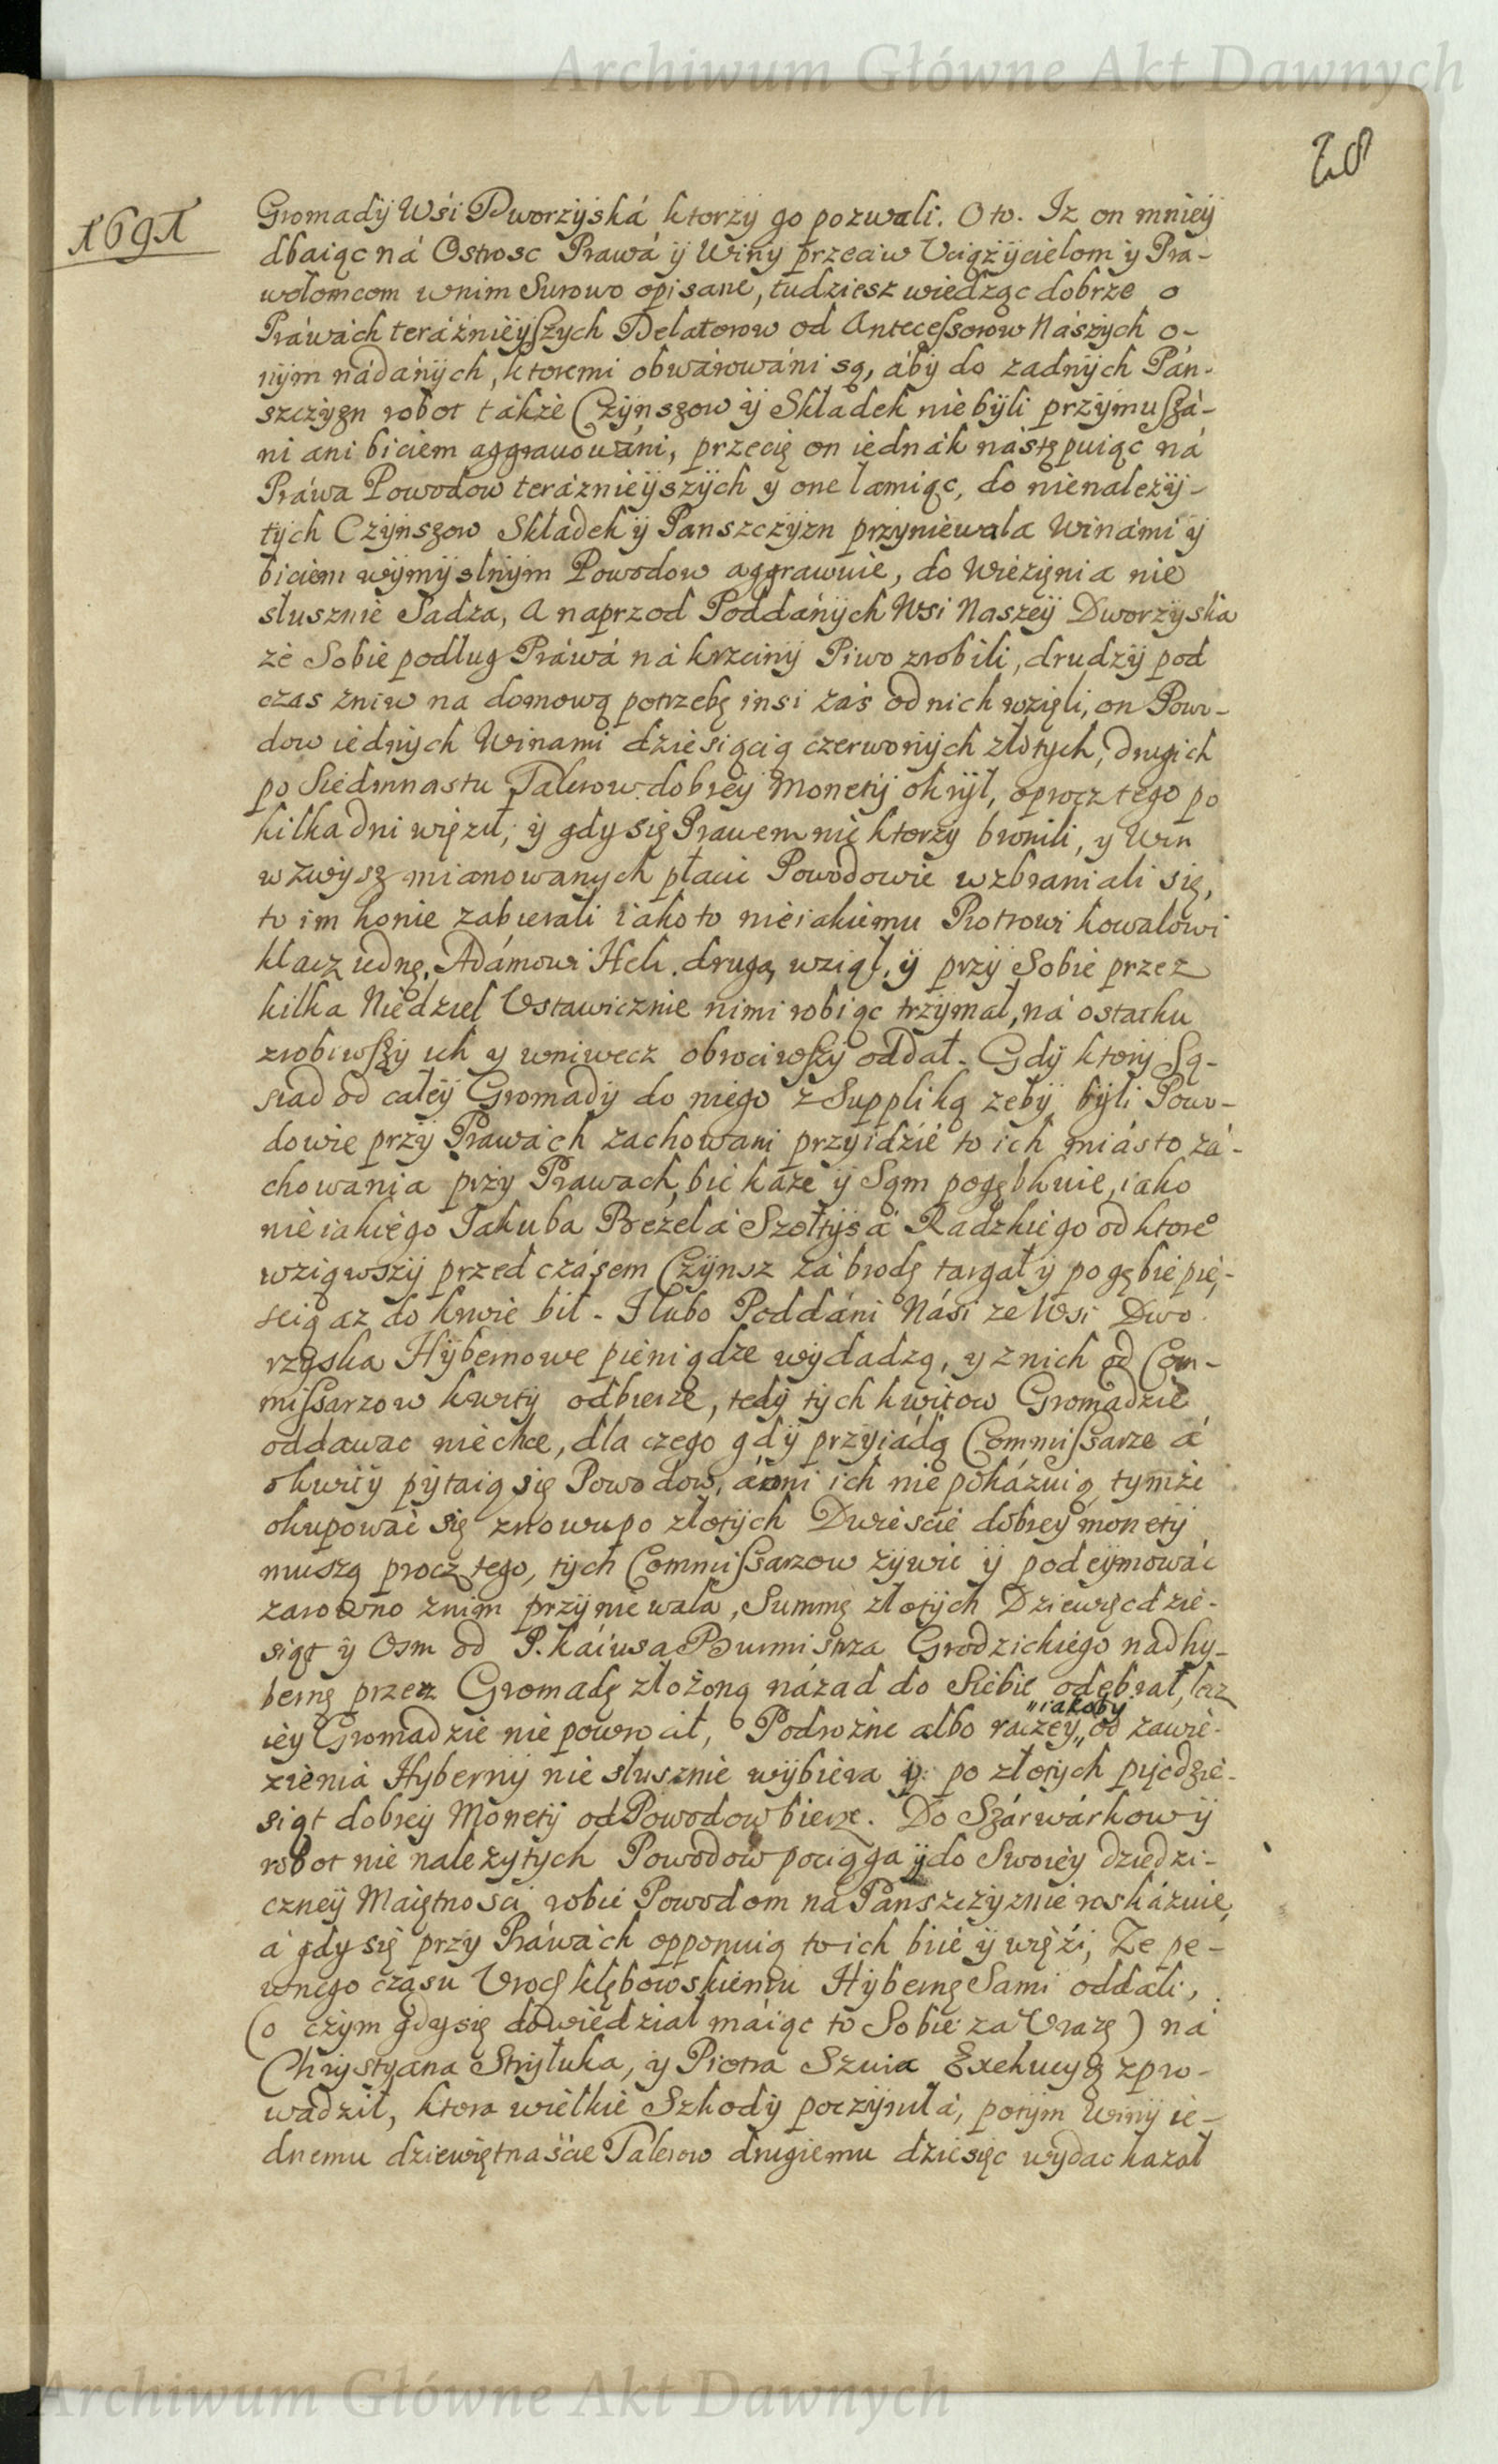 Archiwum Główne Akt Dawnych
28
1691
Gromady Wsi Dworzyská ktorzy go pozwali. O to. Iz on mniey
dbaiąc ná Ostrosc Prawá y Winy przeciw Uciązycielom y Pra-
wołomcom wnim Surowo opisane, tudziesz wiedząc dobrze o
Práwách teráżnieyszych Delatorow od Antecessorow Nászych o-
nym nádánych, ktoremi obwárowáni są, áby do zadnych Pán-
szczyzn robot także Czynszow y Składek nie byli przymuszá-
ni ani biciem aggrauowáni, przecię on iednák nástępuiąc ná
Práwa Powodow teráznieyszych y one łamiąc, do nienależy-
tych Czynszow Składek y Panszczyzn przyniewala Winámi y
biciem wymyslnym Powodow aggrawuie, do Więzięnia nie
słusznie Sadza, A naprzod Poddánych Wsi Naszey Dworzyska
że Sobie podług Práwá ná krzciny Piwo zrobili, drudzy pod
czas zniw na domową potrzebę insi zaś od nich wzięli, on Powo-
dow iednych Winami dziesiącią czerwonych złotych, drugich
po Siedmnastu Talerow dobrey Monety okrył, oprocz tego po
kilka dni więził, y gdy się Prawem nie ktorzy bronili, y Win
wzwysz mianowanych płacic Powodowie wzbraniali się,
to im konie zabierali iako to nieiakiemu Piotrowi kowalowi
klacz iednę, Adámowi Hch. drugą wziął, y przy Sobie przez
kilka Niedziel Ustawicznie nimi robiąc trzymał, ná ostatku
zrobiwszy ich y wniwecz obrociwszy oddał. Gdy ktory Są-
siad od całey Gromady do niego z Suppliką zeby byli Powo-
dowie przy Prawách zachowani przyidzie to ich miásto zá-
chowania przy Prawach, bic każe y Sąm pogębkuie, iako
nieiakiego Jakuba Beżelá Szołtysá Radzkiego od ktore°
wziąwszy przed czásem Czynsz zá brodę targał y po gębie pię-
scią az do krwie bił. I lubo Poddáni Nási ze Wsi Dwo
rzyska Hybernowe pieniądze wydadzą, y znich od Com-
missarzow kwity odbierze, tedy tych kwitow Gromadzie
oddawac niechce, dla czego gdy przyiádą Commissarze á
okwity pytaią się Powodow, á oni ich nie pokázuią, tymże
okupowáć się znowu po złotych Dwieście dobrey monety
muszą procz tego, tych Commissarzow żywic y podeymowáć
zarowno znim przyniewala, Summę złotych Dziewięcdzie-
siąt y Osm od P. káiusa Burmistrza Grodzickiego nad hy-
bernę przez Gromadę złożoną názad do Siebie odebrał, lecz
iey Gromadzie nie powrocił, Podrożne albo raczey „iakoby„ od zawie-
zienia Hyberny nie słusznie wybiera y po złotych pięcdzie-
siąt dobrey Monety od Powodow bierze. Do Szárwárkow y
robot nie należytych Powodow pociąga y do Swoiey dziedzi-
czney Maiętnosci robic Powodom ná Panszczyznie roskázuie,
á gdy się przy Práwách opponuią to ich biie y więzi, Ze pe-
wnego czasu Urodz kłębowskiemu Hybernę Sami oddali,
(o czym gdy się dowiedział máiąc to Sobie za Urazę) ná
Chrystyana Stryłuka, y Piotra Szuia Exekucyą zpro-
wadził, ktora wielkie Szkody poczyniłá, potym Winy ie-
dnemu dziewiętnaście Talerow drugiemu dziesięc wydac kazał
Archiwum Główne Akt Dawnych